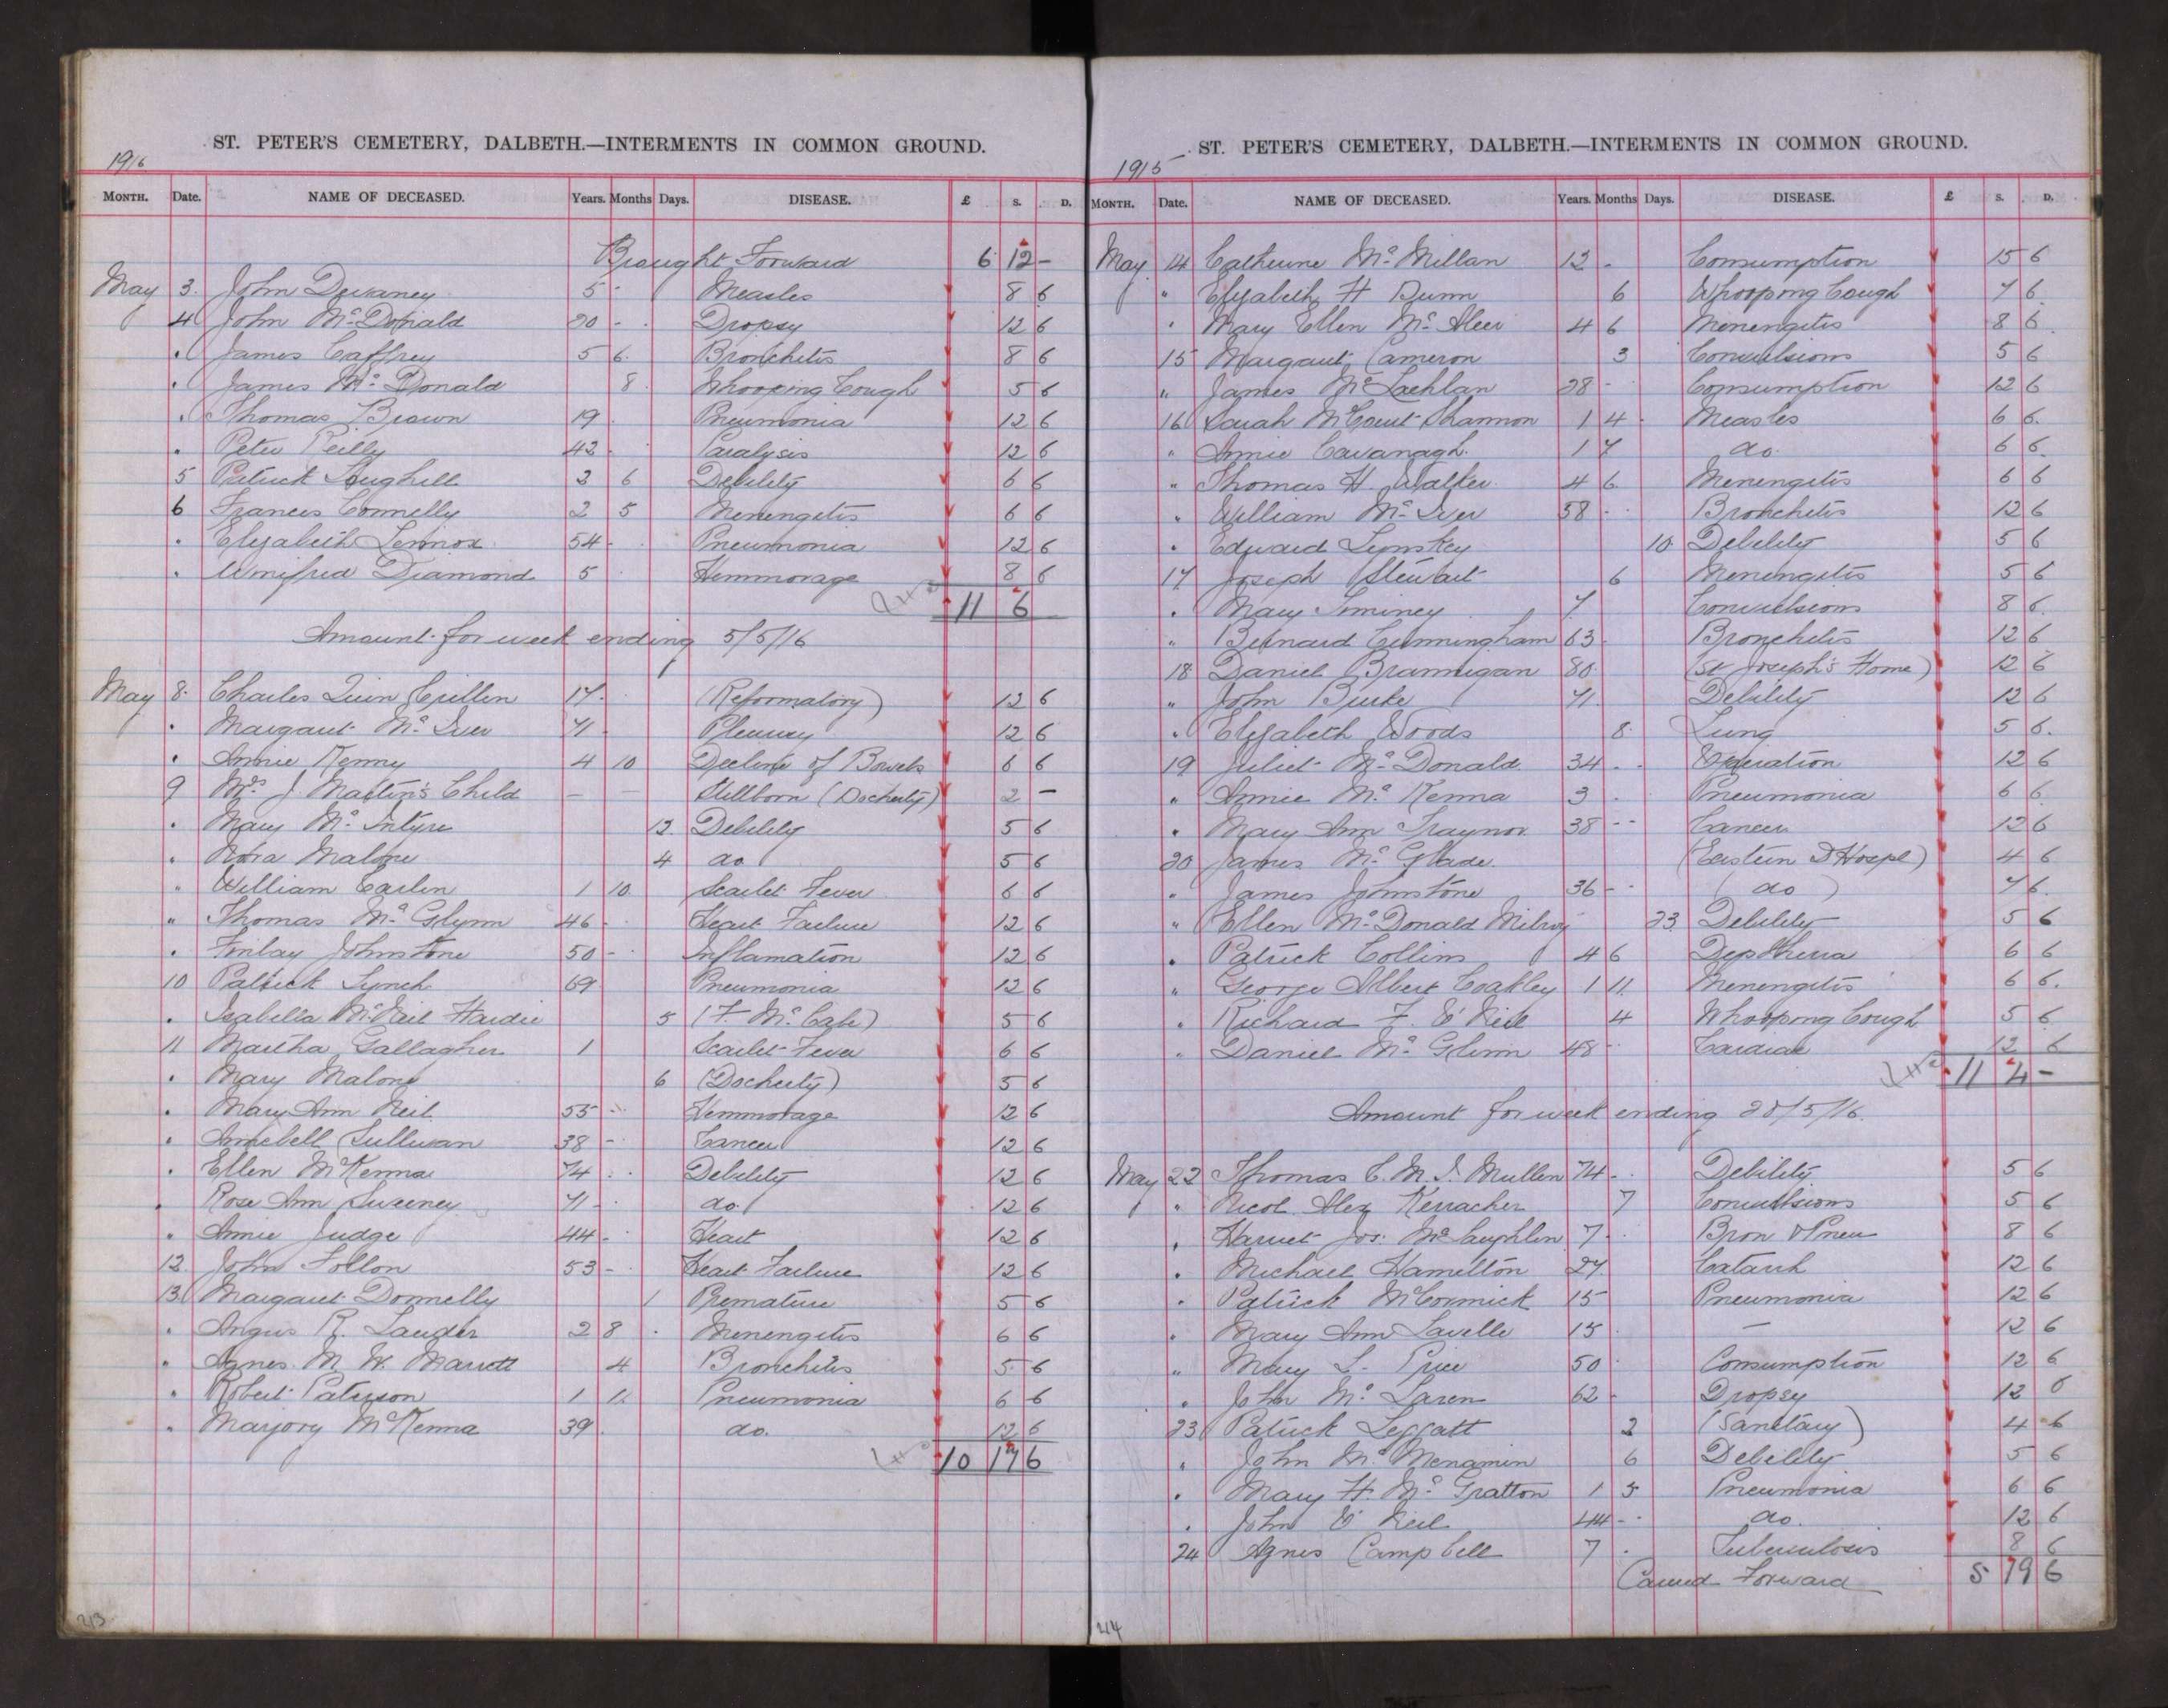 ST. PETER'S CEMETERY, DALBETH.—INTERMENTS IN COMMON GROUND.
1916
MONTH. Date. NAME OF DECEASED. Years. Months Days. DISEASE. £ S. D.
Brought Forward 6 12 -
May 3. John Devaney 5 - Measles 8 6
4 John Mc Donald 20 - . Dropsy 12 6
. James Caffrey 5 6 Bronchitis 8 6
. James Mc Donald 8 Whooping Cough 5 6
. Thomas Brown 19 . Pneumonia 12 6
. Peter Reilly 42 . Paralysis 12 6
5 Patrick 2 6 Debility 6 6
6 Frances Connelly 2 5 Menengitis 6 6
. Elizabeth Lennox 54 - Pneumonia 12 6
. Winifred Diamond 5 . Hemmorage 8 6
11 6
Amount for week ending 5/5/16
May 8. Charles Quin Crillin 17 - (Reformatory) 12 6
. Margaret Mc Iver 71 Pleurisy 12 6
. Annie Kenny 4 10 Decline of Bowels 6 6
9 Mrs J. Martin's Child — — Stillborn (Docherty) 2 -
. Mary Mc Intyre 12 Debility 5 6
. Nora Malone 4 do 5 6
" William Carlin 1 10 Scarlet Fever 6 6
" Thomas Mc Glynn 46 - Heart Failure 12 6
. Finlay Johnstone 50 - Inflamation 12 6
10 Patrick Lynch 69 Pneumonia 12 6
. Isabella McNeil Hardie 5 (F. Mc Cabe) 5 6
11 Martha Gallagher 1 Scarlet Fever 6 6
. Mary Malone 6 (Docherty) 5 6
. Mary Ann Neil 55 - Hemmorage 12 6
. Annebell Sullivan 38 - Cancer 12 6
. Ellen McKenna 74 . Debility 12 6
. Rose Ann Sweeney 71 - do. 12 6
. Annie Judge 44 - Heart 12 6
12 John Follon 53 - Heart Failure 12 6
13 Margaret Donnelly 1 Premature 5 6
. Angus R. Lauder 2 8 . Menengitis 6 6
. Agnes M. W. 4 Bronchitis 5 6
. Robert Paterson 1 11 Pneumonia 6 6
. Marjory McKenna 39 . do. 12 6
10 17 6
213
ST. PETER'S CEMETERY, DALBETH.—INTERMENTS IN COMMON GROUND.
1915
MONTH. Date. NAME OF DECEASED. Years. Months Days. DISEASE. £ S. D.
May 14 Catherine Mc Millan 12 - Consumption 15 6
" Elizabeth H Dunn 6 Whooping Cough 7 6
. Mary Ellen Mc Aleer 4 6 Menengitis 8 6
15 Margaret Cameron 3 Convulsions 5 6
" James Mc Lachlan 28 - Consumption 12 6
16 Sarah McCourt Shannon 1 4 - Measles 6 6
" Annie Cavanagh 1 7 do. 6 6
" Thomas H. Walker 4 6 Menengitis 6 6
. William Mc Iver 58 - Bronchitis 12 6
. Edward Lynskey 10 Debility 5 6
17 Joseph Stewart 6 Menengitis 5 6
. Mary Timiney 7 Convulsions 8 6
" Bernard Cunningham 63 . Bronchitis 12 6
18 Daniel Brannigan 80 (St Joseph's Home) 12 6
" John Burke 71 Debility 12 6
. Elizabeth Woods 8 Lung 5 6
19 Juliet Mc Donald 34 . . 12 6
" Annie Mc Kenna 3 . Pneumonia 6 6
. Mary Ann Traynor 38 - - Cancer 12 6
20 James Mc Glade (Eastern D. Hospl) 4 6
. James Johnstone 36 - . ( do ) 7 6
" Ellen Mc Donald Milroy 23 Debility 5 6
. Patrick Collins 4 6 Diptheria 6 6
" George Albert Coakley 1 11 Menengitis 6 6
. Richard F. O'Neil 4 Whooping Cough 5 6
" Daniel Mc Glinn 48 - Cardiac 12 6
11 4 -
Amount for week ending 20/5/16.
May 22 Thomas C. M. J. Mullen 74 - Debility 5 6
" Nicol Alex Kerracher 7 Convulsions 5 6
. Harriet Jos. McLaughlin 7 . Bron & Pneu 8 6
. Michael Hamilton 27 Catarrh 12 6
. Patrick McCormick 15 Pneumonia 12 6
. Mary Ann Lavelle 15 . — 12 6
" Mary L. Price 50 . Consumption 12 6
. John Mc Laren 62 - Dropsy 12 6
23 Patrick Leggatt 2 (Sanitary) 4 6
. John Mc Menamin 6 Debility 5 6
. Mary H. Mc Gratton 1 5 Pneumonia 6 6
. John O'Neil 44 - - do. 12 6
24 Agnes Campbell 7 . Tuberculosis 8 6
Carried Forward 5 19 6
214